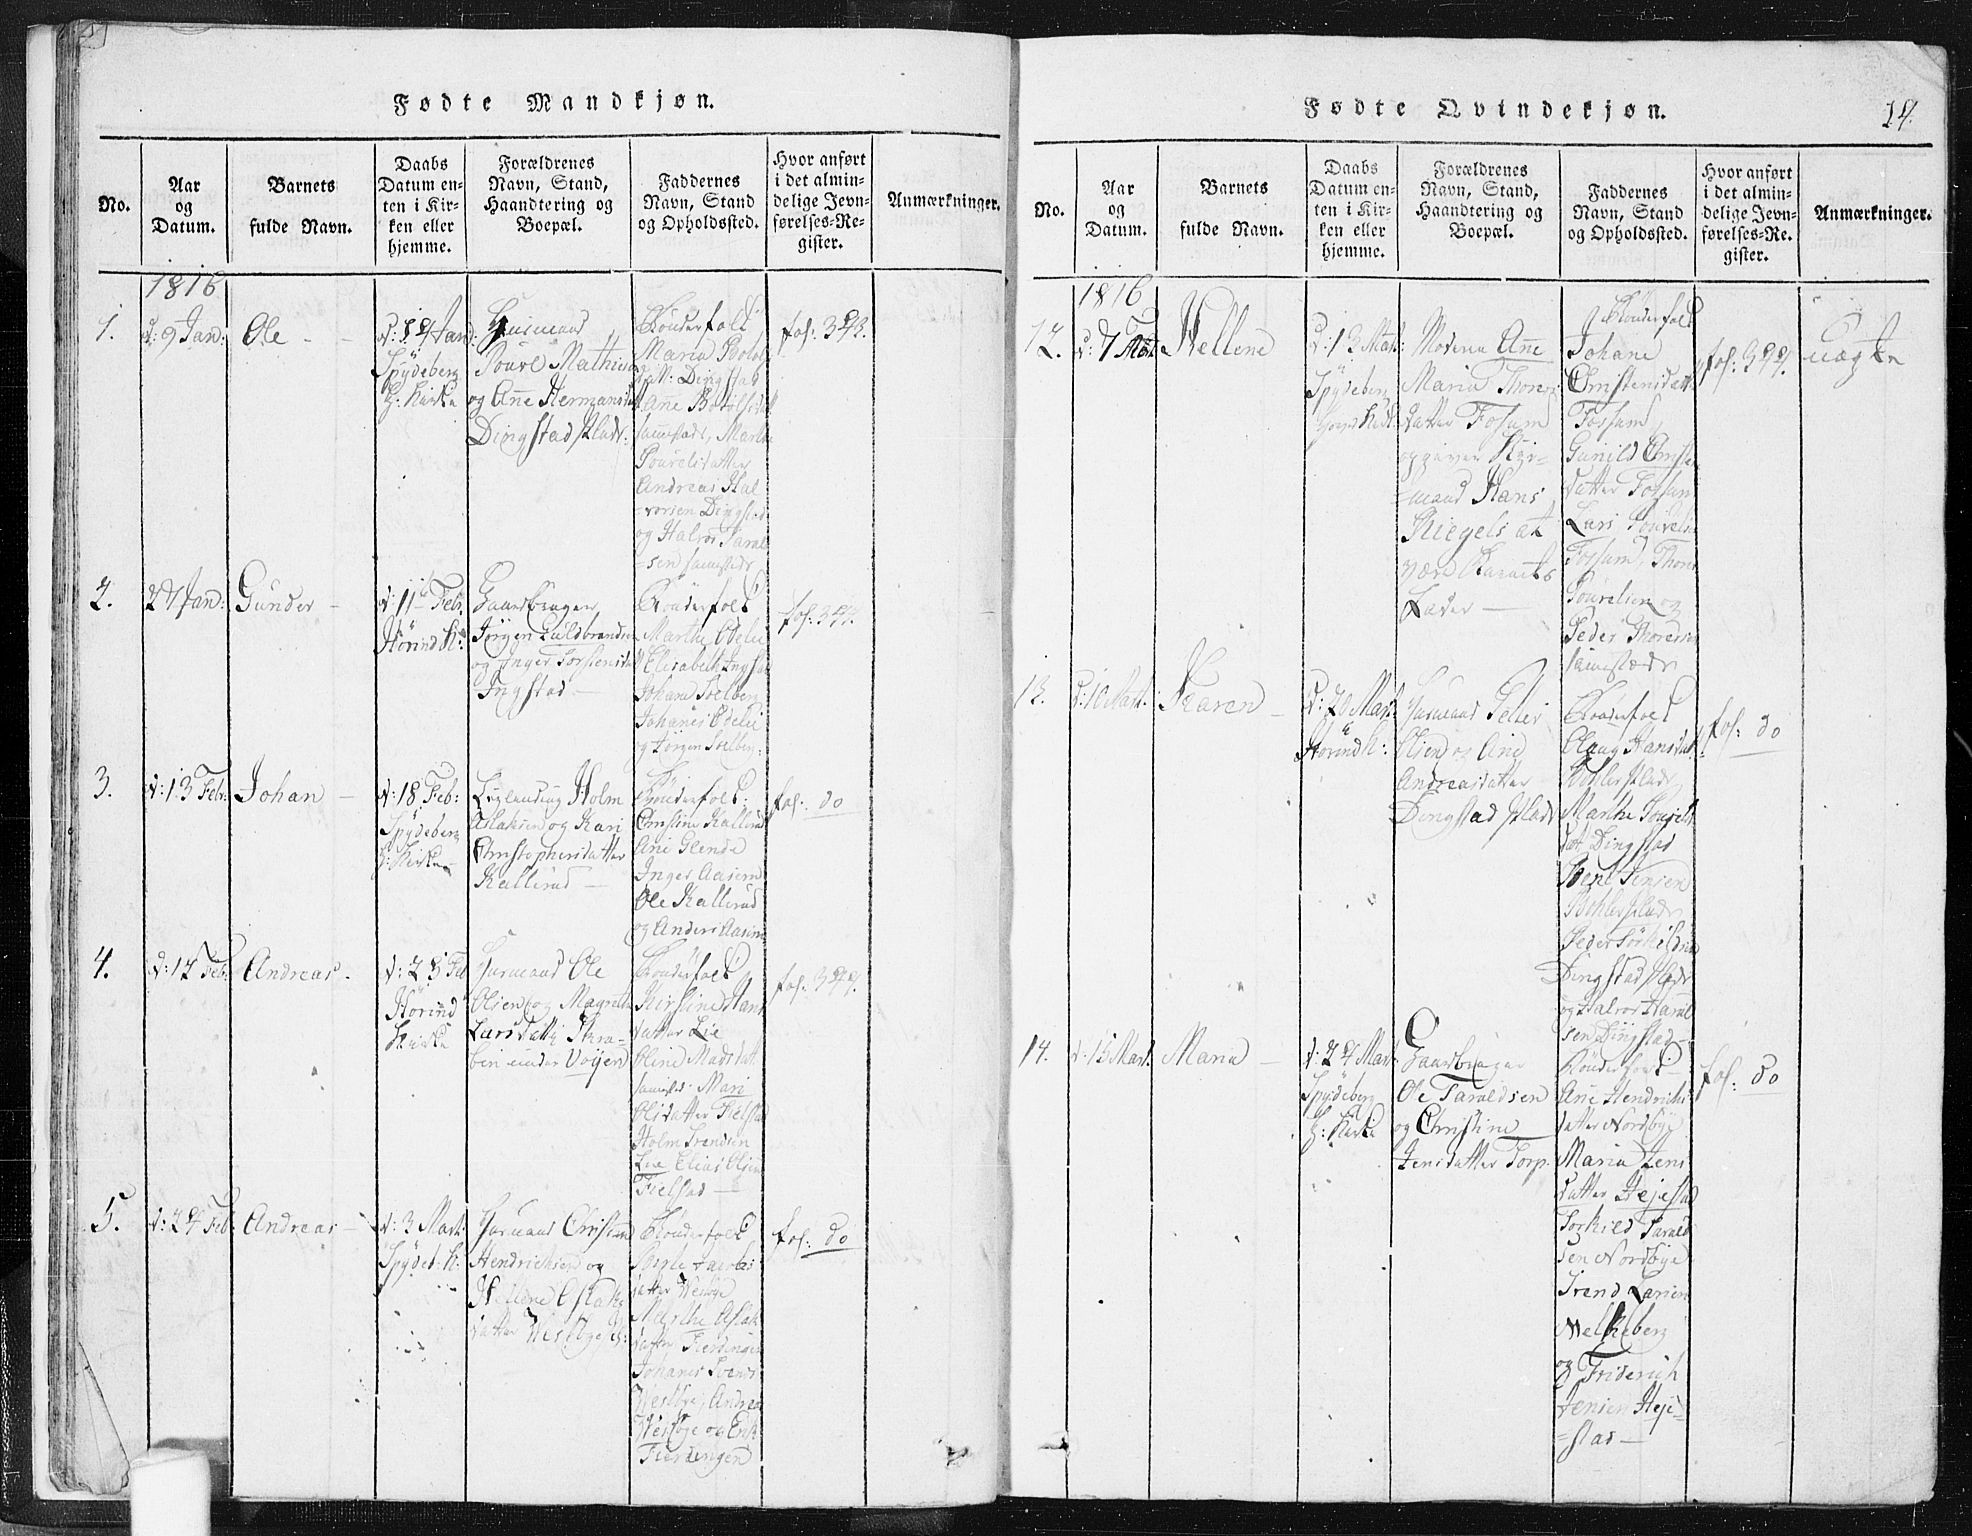 Fødte Mandkjøn.
No.
Aar
og
Datum.
Barnets
fulde Navn.
Daabs
Datum en-
ten i Kir-
ken eller
hjemme.
Forældrenes
Navn, Stand,
Haandtering og
Boepæl.
Faddernes
Navn, Stand
og Opholdssted.
Hvor anført
i det almin-
delige Jevn-
førelses-Re-
gister.
Anmærkninger.
1816
1.
d: 9 Jan:
Ole
d: 14 Jan:
Spydeberg
H: Kirke
Huusmand
Povel Mathiesen
og Anne Hermansdatt
Dingstad Plads:
Bønderfolk
Maria Botols
datt: Dingstad
Anne Botolsdatt
sammesteds, Marthe
Povelsdatter
Andreas Hal
=vorsen Dingstad
og Halvor Taral
=sen sammesteds
fol: 343.
2.
27 Jan:
Gunder
d: 11te Febr.
Hovind K:
Gaardbruger
Jørgen Guldbrandsen
og Inger Torstensdatt
Ingstad
Bønderfolk
Marthe Odelie
Elisabeth Ingstad
Johane Solberg
Johanes Odelie
og Jørgen Solberg:
fol: 344.
3.
d: 13 Febr:
Johan
d: 18 Feb:
Spydeberg
H: Kirke
Holm
Aslaksen og Kari
Christophersdatter
Kallerud
Bønderfolk:
Christine Kallerud
Ane Glende
Inger Aasem
Ole Kallerud
og Anders Aasem
fol: do
4.
d: 17 Feb:
Andreas
d: 25 Feb
Hovind
Kirke
Huusmand Ole
Olsen og Magrethe
Larsdatt:
under Vøyen
Bønderfolk
Kirstine Hans
datter Lie
Olene Madsdatt
sammest: Mari
Olsdatter Fielstad
Holm Svendsen
Lie Elias Olsen
Fielstad
fol: 344.
5.
d: 24 Feb:
Andreas
d: 3 Mart:
Spydeb: K:
Huusmand Christian
Hendrichsen og
Hellene Aslaks
datter Westbye
Bønderfolk
datter Wesbye
Marthe Aslak
datter Fierdingen
Johanes Svends
Wesbye, Andreas
Wesbye og Erik
Fierdingen
fol: do
Fødte Qvindekjøn.
14.
No.
Aar
og
Datum.
Barnets
fulde Navn.
Daabs
Datum en-
ten i Kir-
ken eller
hjemme.
Forældrenes
Navn, Stand,
Haandtering og
Boepæl.
Faddernes
Navn, Stand
og Opholdssted.
Hvor anført
i det almin-
delige Jevn-
førelses-Re-
gister.
Anmærkninger.
1816
12.
d: 7
Hellene
d: 13 Mart:
Spydeberg
Hoved Kirk:
Moderen Anne
Maria Thores
datter Fossum
opgiver Styr-
=mand Hans
Riegels at
være Barnets
Fader
Bønderfolk
Johane
Christensdatt
Fossum,
Gunild Christens
datter Fossum
Lars Povelsen
Fossum, Thore
Povelsen og
Peder Thoresen
sammesteds
fol: 344.
uægte
13.
d: 10 Mart:
Karen
d: 24 Mart:
Hovind K:
Huusmand Peder
Olsen og Ane
Andreasdatter
Dingstad Plads
Bønderfolk
Olaug Hansdatt
Bøhler Plads
Marthe Povels
datt, Dingstad
Bent Jensen
Bøhler Plads
Peder Torkildsen
Dingstad Plads
og Halvor Haral
sen Dingstad
fol: do
14.
d: 15 Mart:
Maria
d: 24 Mart:
Spydeberg
H: Kirke
Gaardbruger
Ole Taraldsen
og Christine
Jensdatter Torp
Bønderfolk
Ane Hendrichs
datter Nordbye
Maria Jens
datter Hejestad
Torkild Tarald
sen Nordbye
Svend Larsen
Melleberg
og Friderich
Jensen Heje=
=stad
fol: do